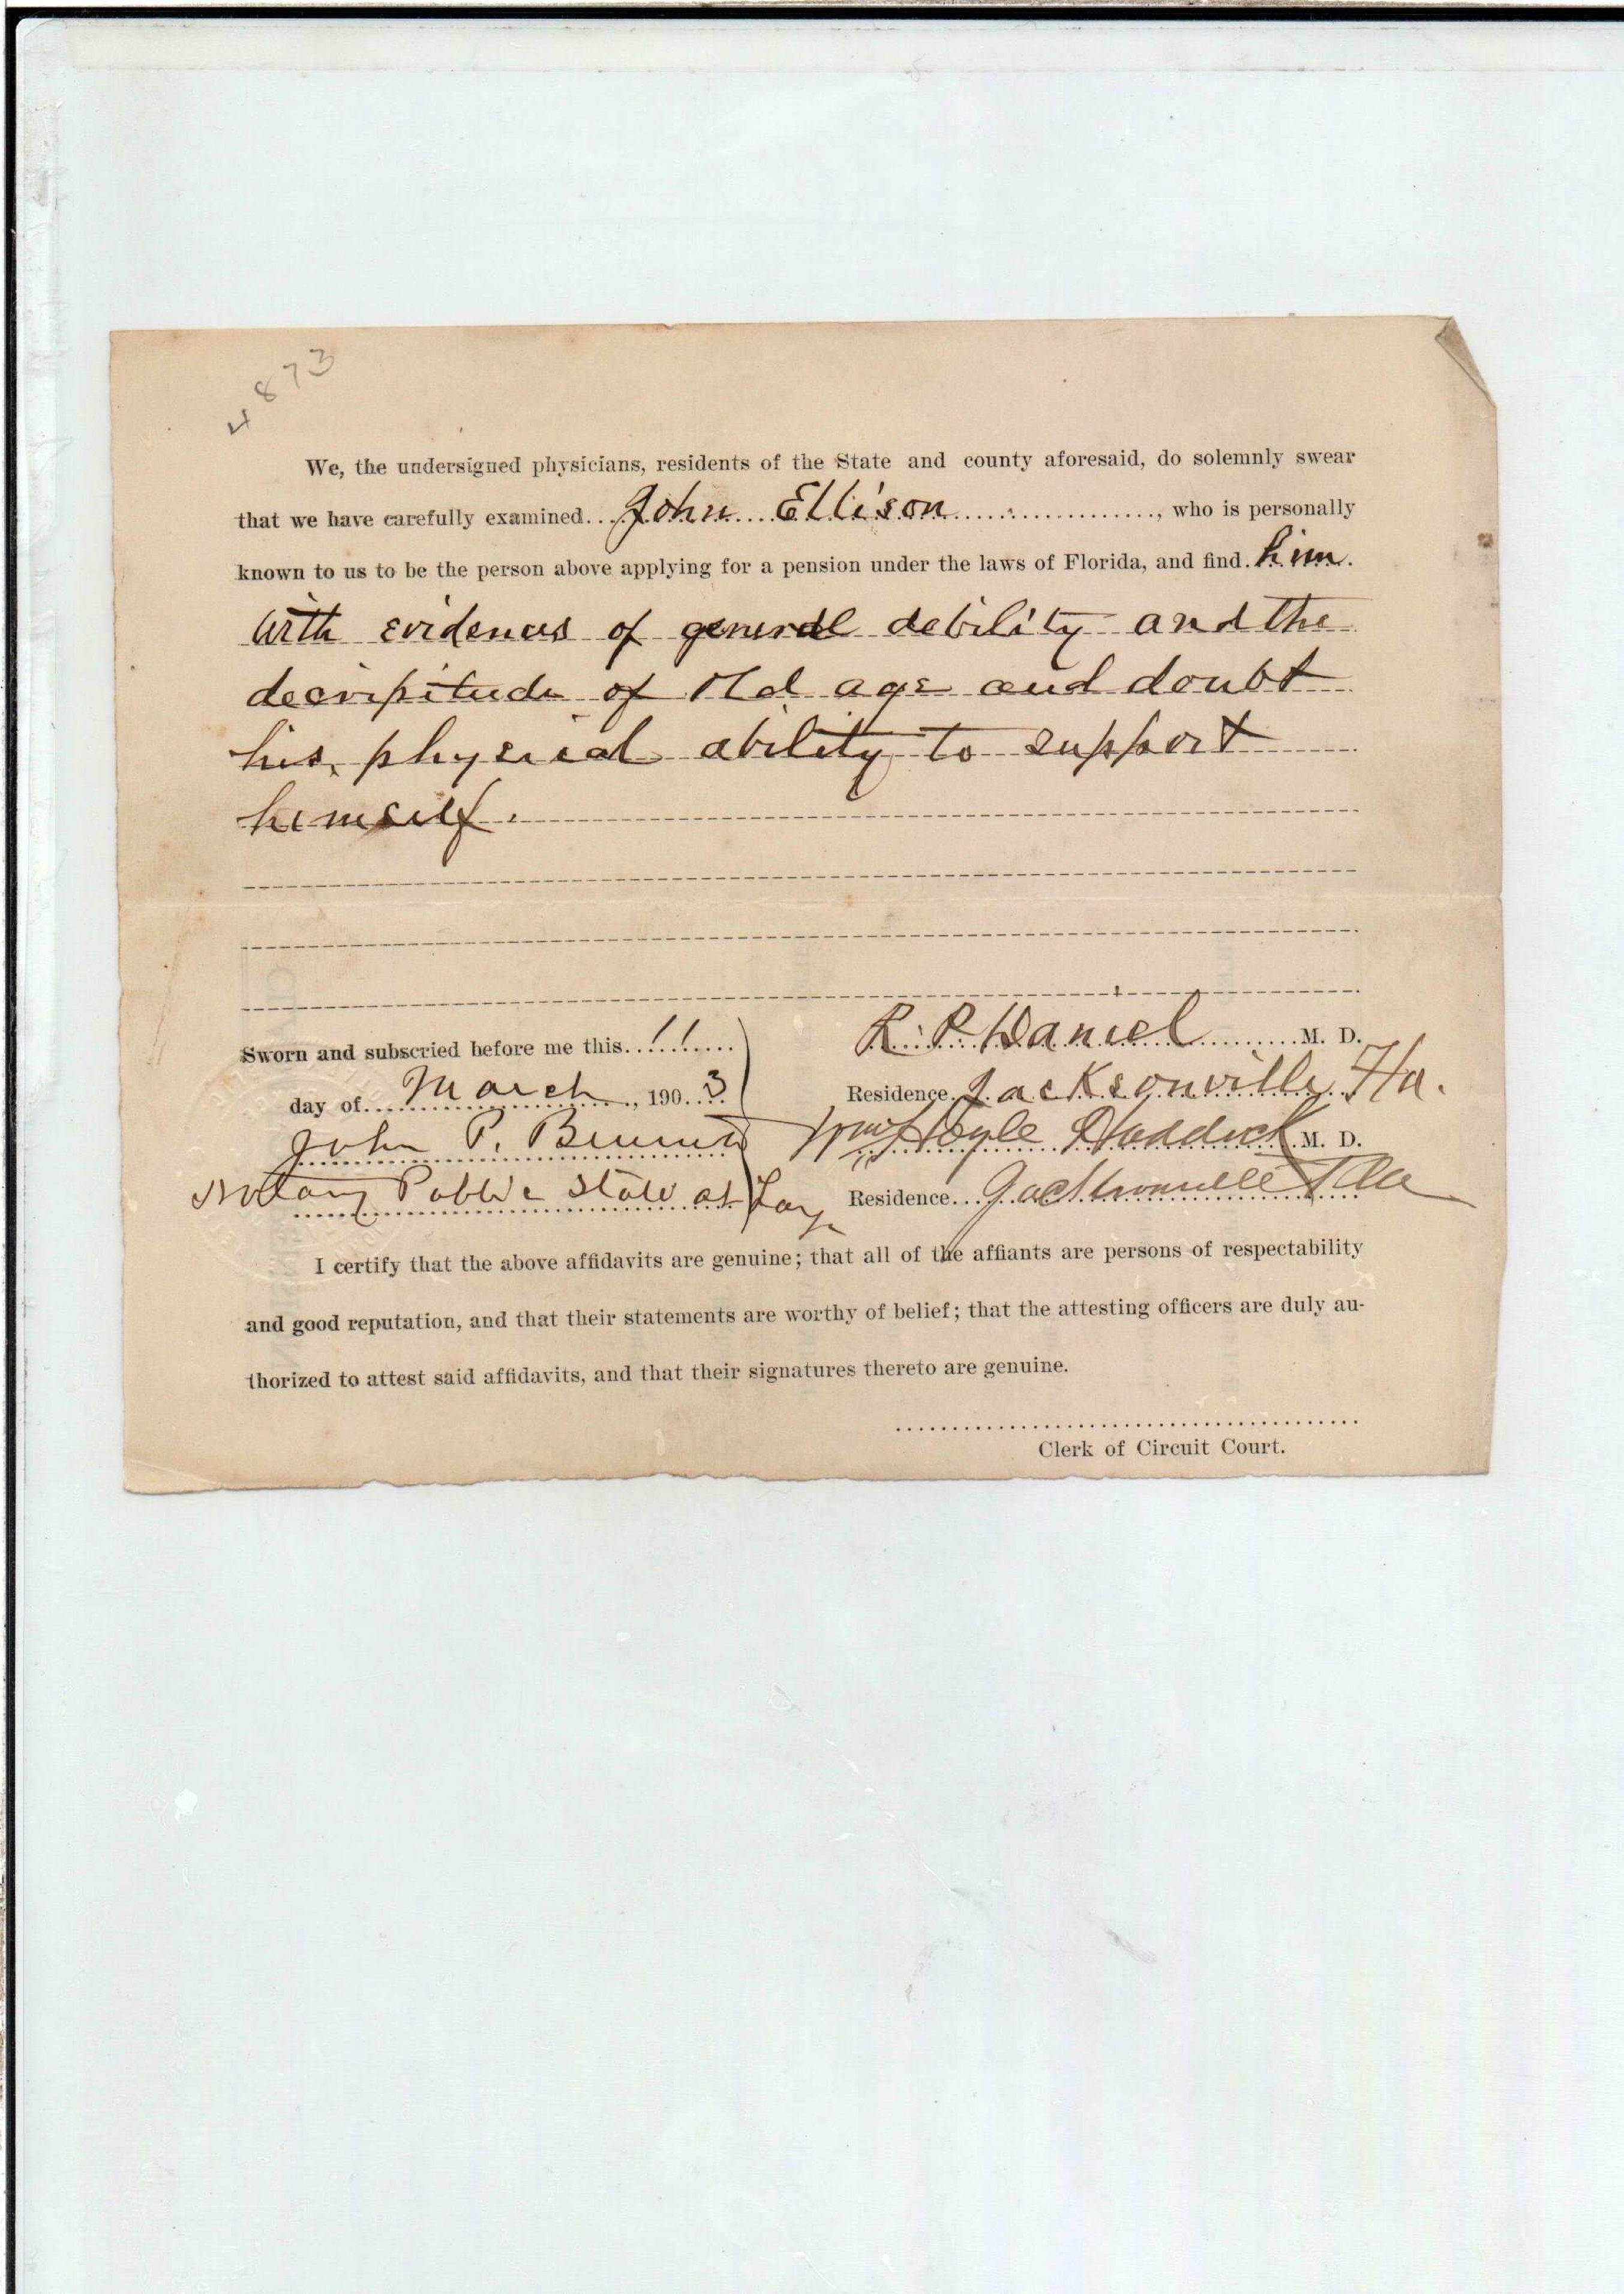 4873
We, the undersigned physicians, residents of the State and county aforesaid, do solemnly swear
that we have carefully examined John Ellison, who is personally
known to us to be the person above applying for a pension under the laws of Florida, and find him
with evidences of general debility and the
decripitude of old age and doubt
his physical ability to support
himself.
Sworn and subscried before me this 11
day of March, 1903
John P.
Notary Public State at Large
R. P. Daniel M. D.
Residence Jacksonville Fla.
Wm Hoyle Haddock M. D.
Residence Jacksonville Fla
I certify that the above affidavits are genuine; that all of the affiants are persons of respectability
and good reputation, and that their statements are worthy of belief; that the attesting officers are duly au-
thorized to attest said affidavits, and that their signatures thereto are genuine.
Clerk of Circuit Court.